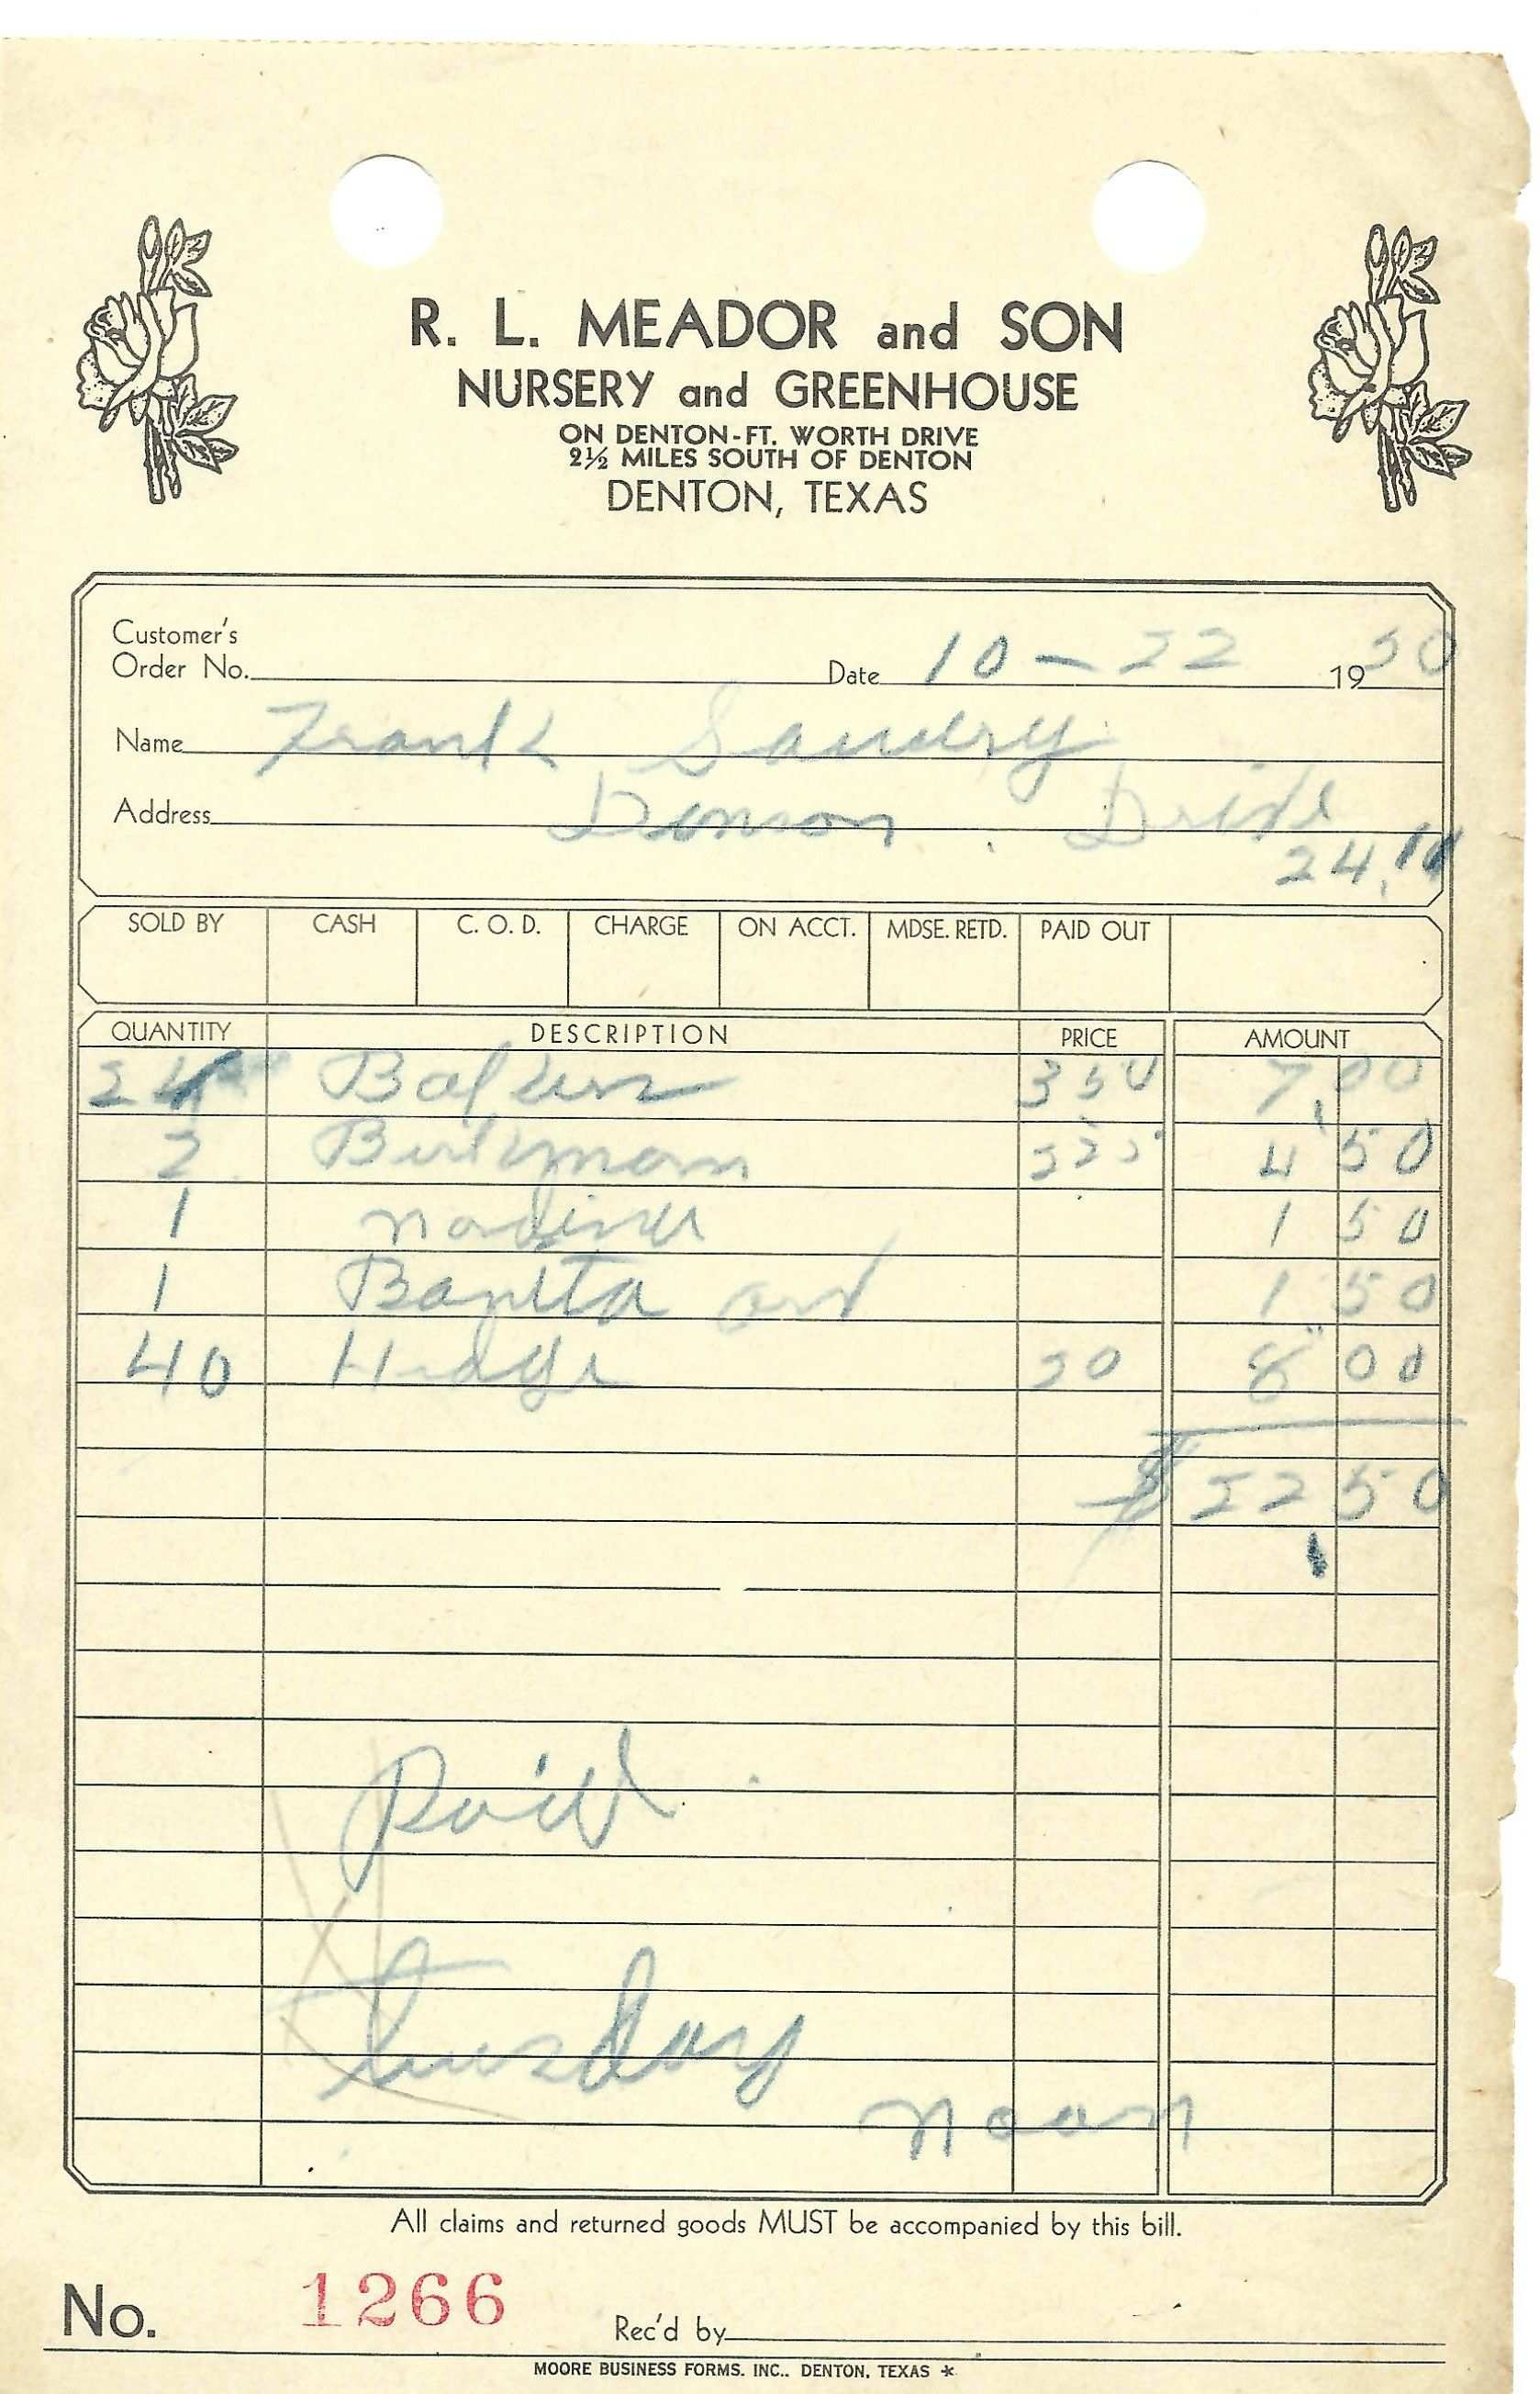 R. L. MEADOR and SON
NURSERY and GREENHOUSE
ON DENTON-FT. WORTH DRIVE
2½ MILES SOUTH OF DENTON
DENTON, TEXAS
Customer's
Order No. Date 10-22 1950
Name Frank
Address Drive
24.
SOLD BY CASH C. O. D. CHARGE ON ACCT. MDSE. RETD. PAID OUT
QUANTITY DESCRIPTION PRICE AMOUNT
2 350 7,00
2 225 4 50
1 1 50
1 Banita 1 50
40 Hedge 20 8 00
$ 22 50
Paid
tuesday
noon
All claims and returned goods MUST be accompanied by this bill.
No. 1266 Rec'd by
MOORE BUSINESS FORMS. INC.. DENTON, TEXAS *